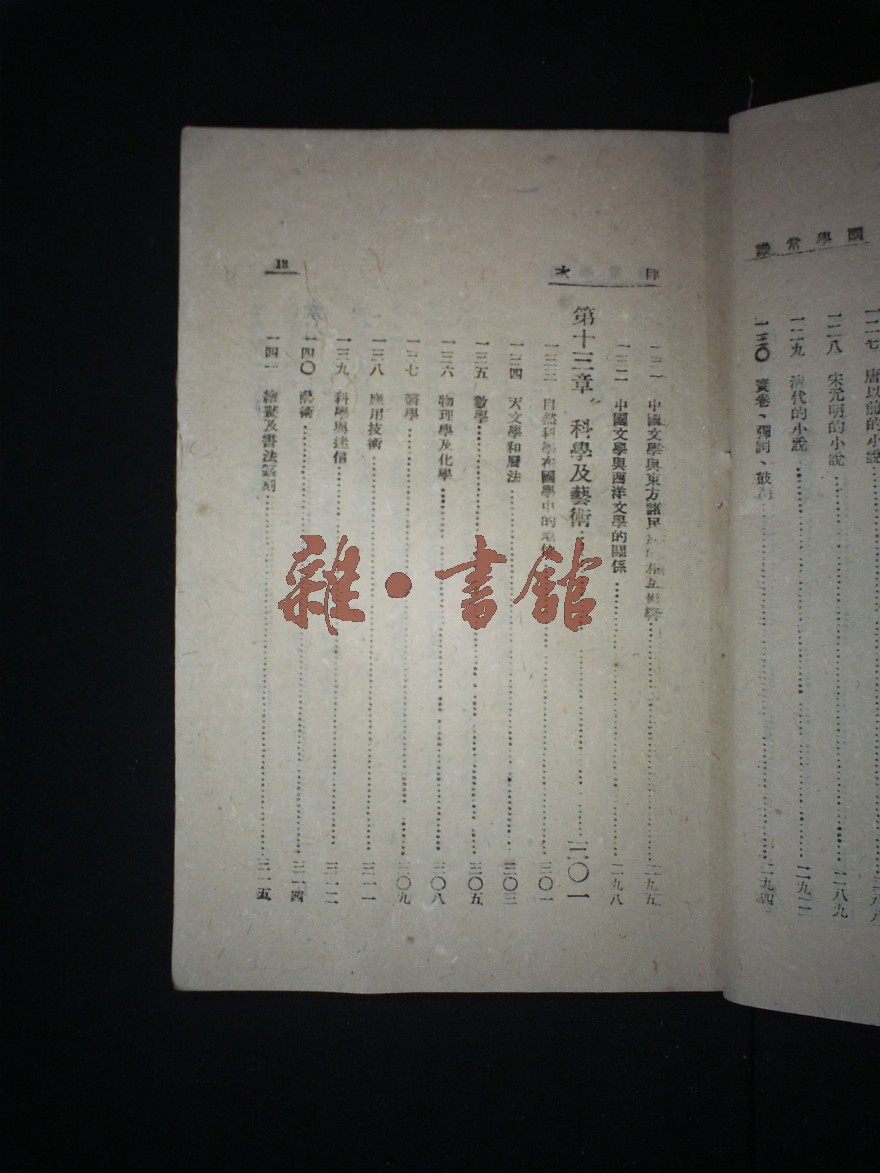 國學常識
一二七 唐以前的小說
一二八 宋元明的小說……二八九
一二九 清代的小說……二九二
一三〇 寶卷、彈詞、鼓……二九四
目次
一三一 中國文學與東方諸民……二九五
一三二 中國文學與西洋文學的關係……二九八
第十三章 科學及藝術……三〇一
一三三 自然科學在國學中的地位……三〇一
一三四 天文學和曆法……三〇三
一三五 數學……三〇五
一三六 物理學及化學……三〇八
一三七 醫學……三〇九
一三八 應用技術……三一一
一三九 科學與迷信……三一二
一四〇 藝術……三一四
一四一 繪畫及書法篆刻……三一五
13
雜•書館